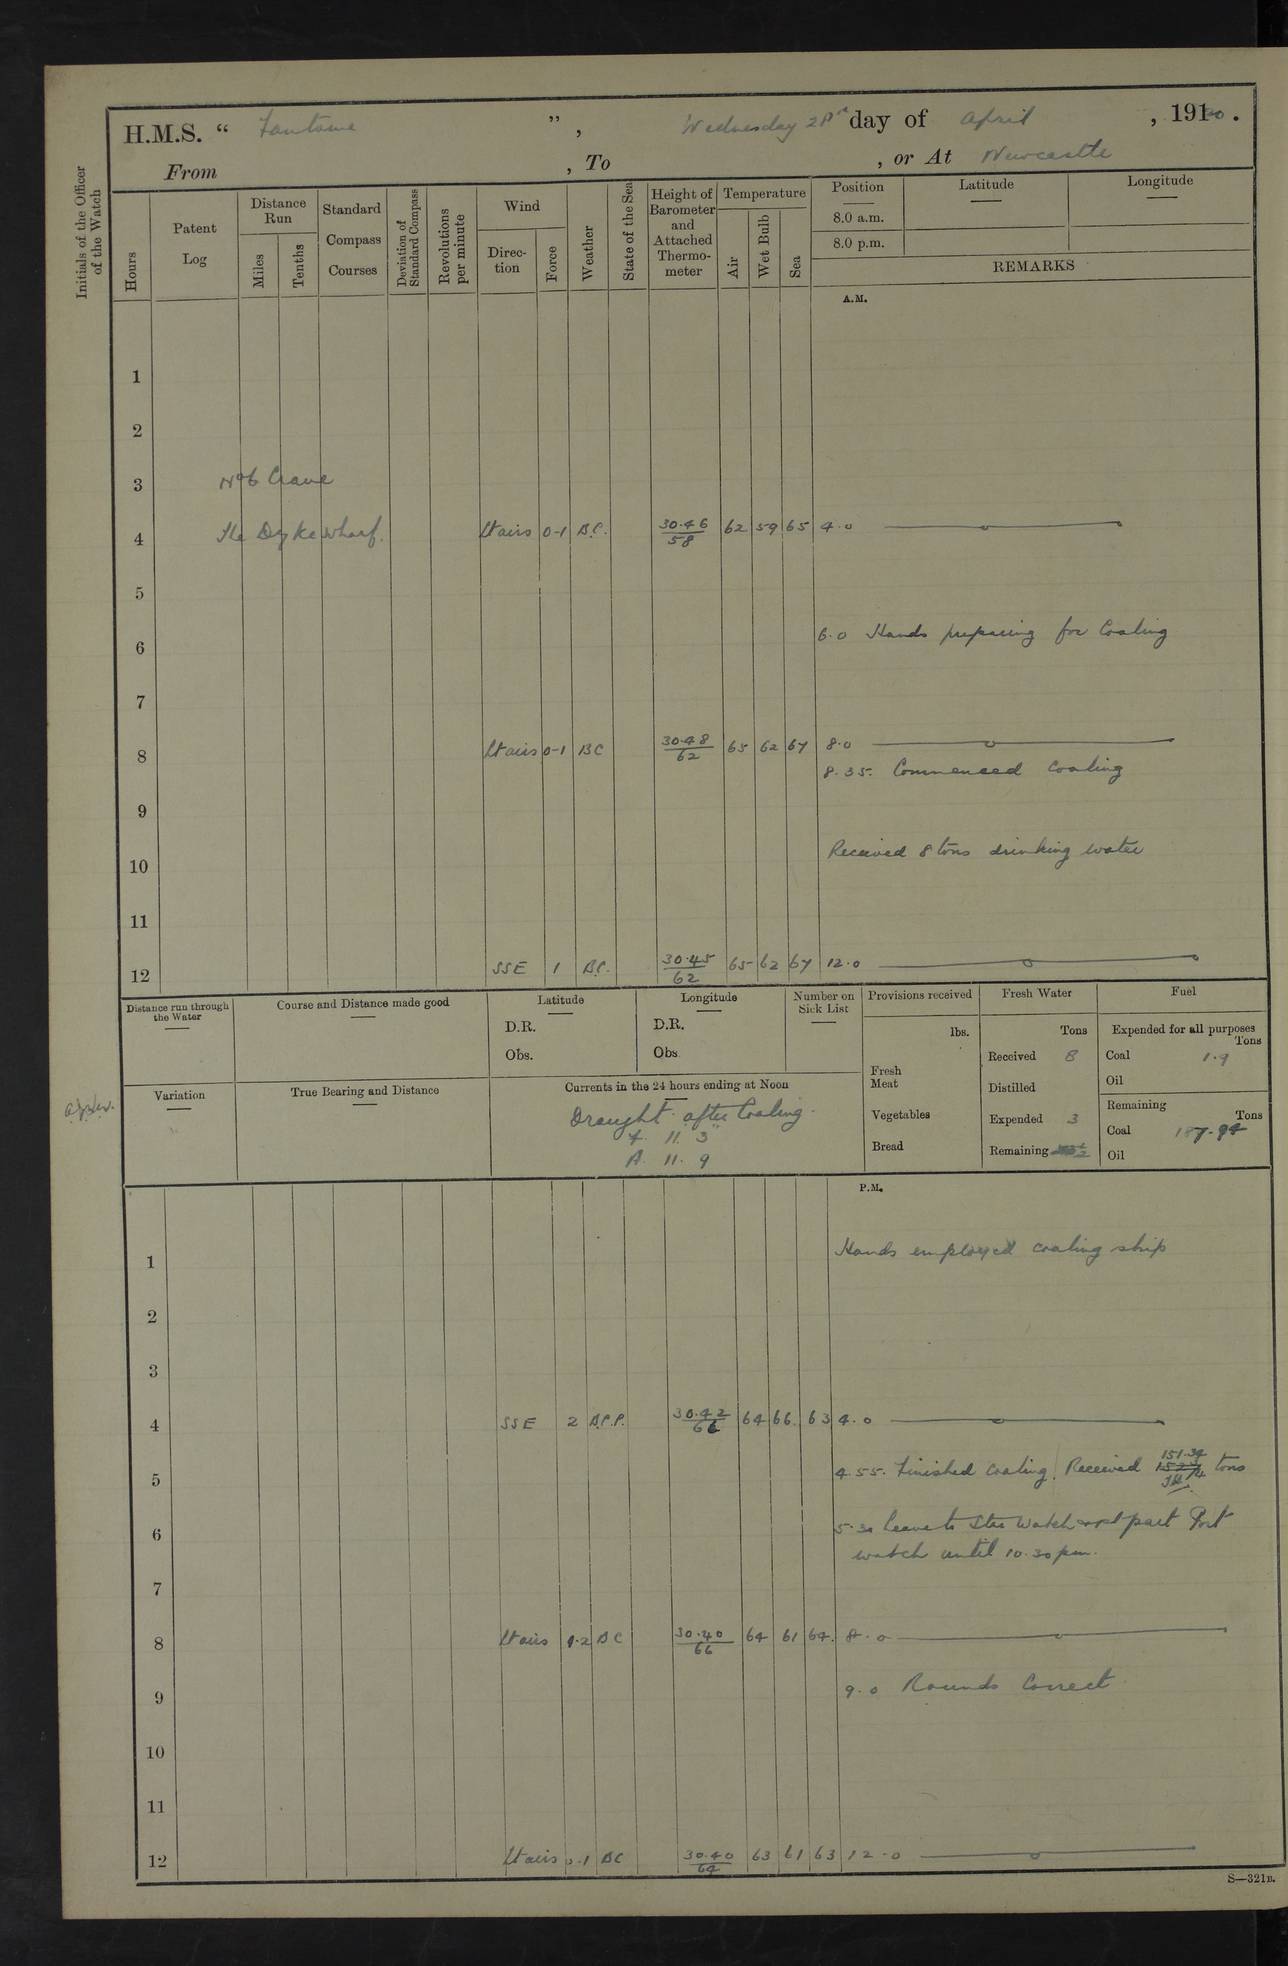 H.M.S. “ Fantome ”, Wednesday 28th day of April , 1920.
From , To , or At Newcastle
Initials of the Officer of the Watch
Hours
Patent Log
Distance Run
Miles
Tenths
Standard Compass Courses
Deviation of Standard Compass
Revolutions per minute
Wind
Direction
Force
Weather
State of the Sea
Height of Barometer and Attached Thermometer
Temperature
Air
Wet Bulb
Sea
Position
8.0 a.m.
8.0 p.m.
Latitude
Longitude
REMARKS
A.M.
1
2
No 6 Crane
3
4 The Dyke Wharf. Lt airs 0-1 B.C. 30.46 58 62 59 65 4.0
5
6 6.0 Hands preparing for Coaling
7
8 Lt airs 0-1 BC 30.48 62 65 62 67 8.0
8.35. Commenced Coaling
9
10 Received 8 tons drinking water
11
12 SSE 1 B.C. 30.45 62 65 62 67 12.0
Distance run through the Water
Course and Distance made good
Latitude
D.R.
Obs.
Longitude
D.R.
Obs.
Number on Sick List
Provisions received
lbs.
Fresh Meat
Vegetables
Bread
Fresh Water
Tons
Received 8
Distilled
Expended 3
Remaining
Fuel
Expended for all purposes
Tons
Coal 1.9
Oil
Remaining
Tons
Coal 187.94
Oil
Variation
True Bearing and Distance
Currents in the 24 hours ending at Noon
Draught after Coaling.
F. 11. 3"
A. 11. 9
P.M.
1 Hands employed coaling ship
2
3
4 SSE 2 B.C.P. 30.42 66 64 66 63 4.0
5 4.55. Finished Coaling. Received 151.34 tons
6 5.30 Leave to Stbd Watch & 1st part Port
watch until 10.30 pm.
7
8 Lt airs 1.2 BC 30.40 66 64 61 64 8.0
9 9.0 Rounds Correct
10
11
12 Lt airs 0.1 BC 30.40 64 63 61 63 12.0
S—321B.